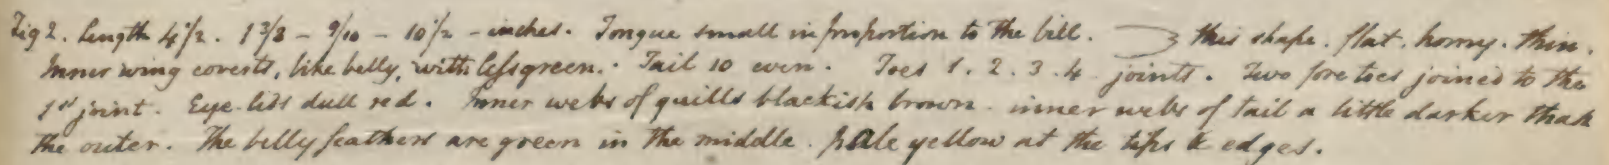 Fig 2. Length 4 1/2. 1 3/8 - 9/10 - 10 1/2 - inches. Tongue small in proportion to the bill. this shape. flat. horny. thin.
Inner wing coverts, like belly, with less green. Tail 10 even. Toes 1. 2. 3. 4 joints. Two fore toes joined to the
1st joint. Eye-lids dull red. Inner webs of quills blackish brown. inner webs of tail a little darker than
the outer. The belly feathers are green in the middle. pale yellow at the tips & edges.